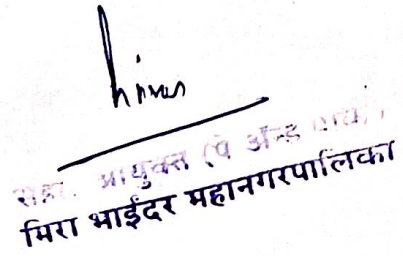 सहा. आयुक्त (पे अॅन्ड पार्क)
मिरा भाईंदर महानगरपालिका